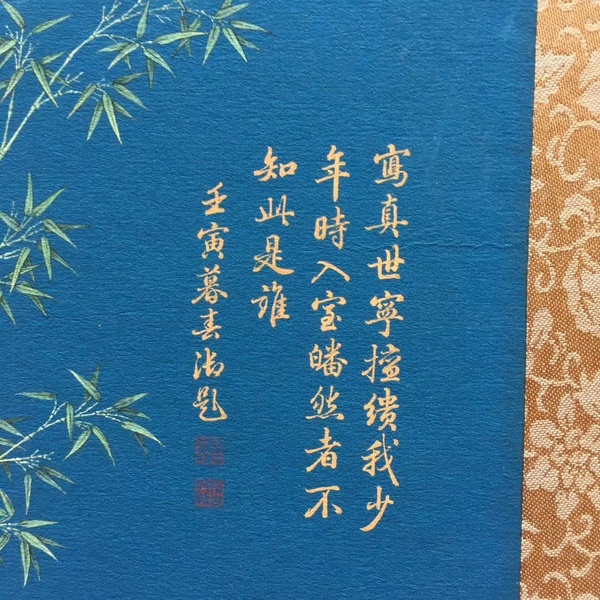 寫真世寧擅繢我少
年時入室皤然者不
知此是誰
壬寅暮春御題